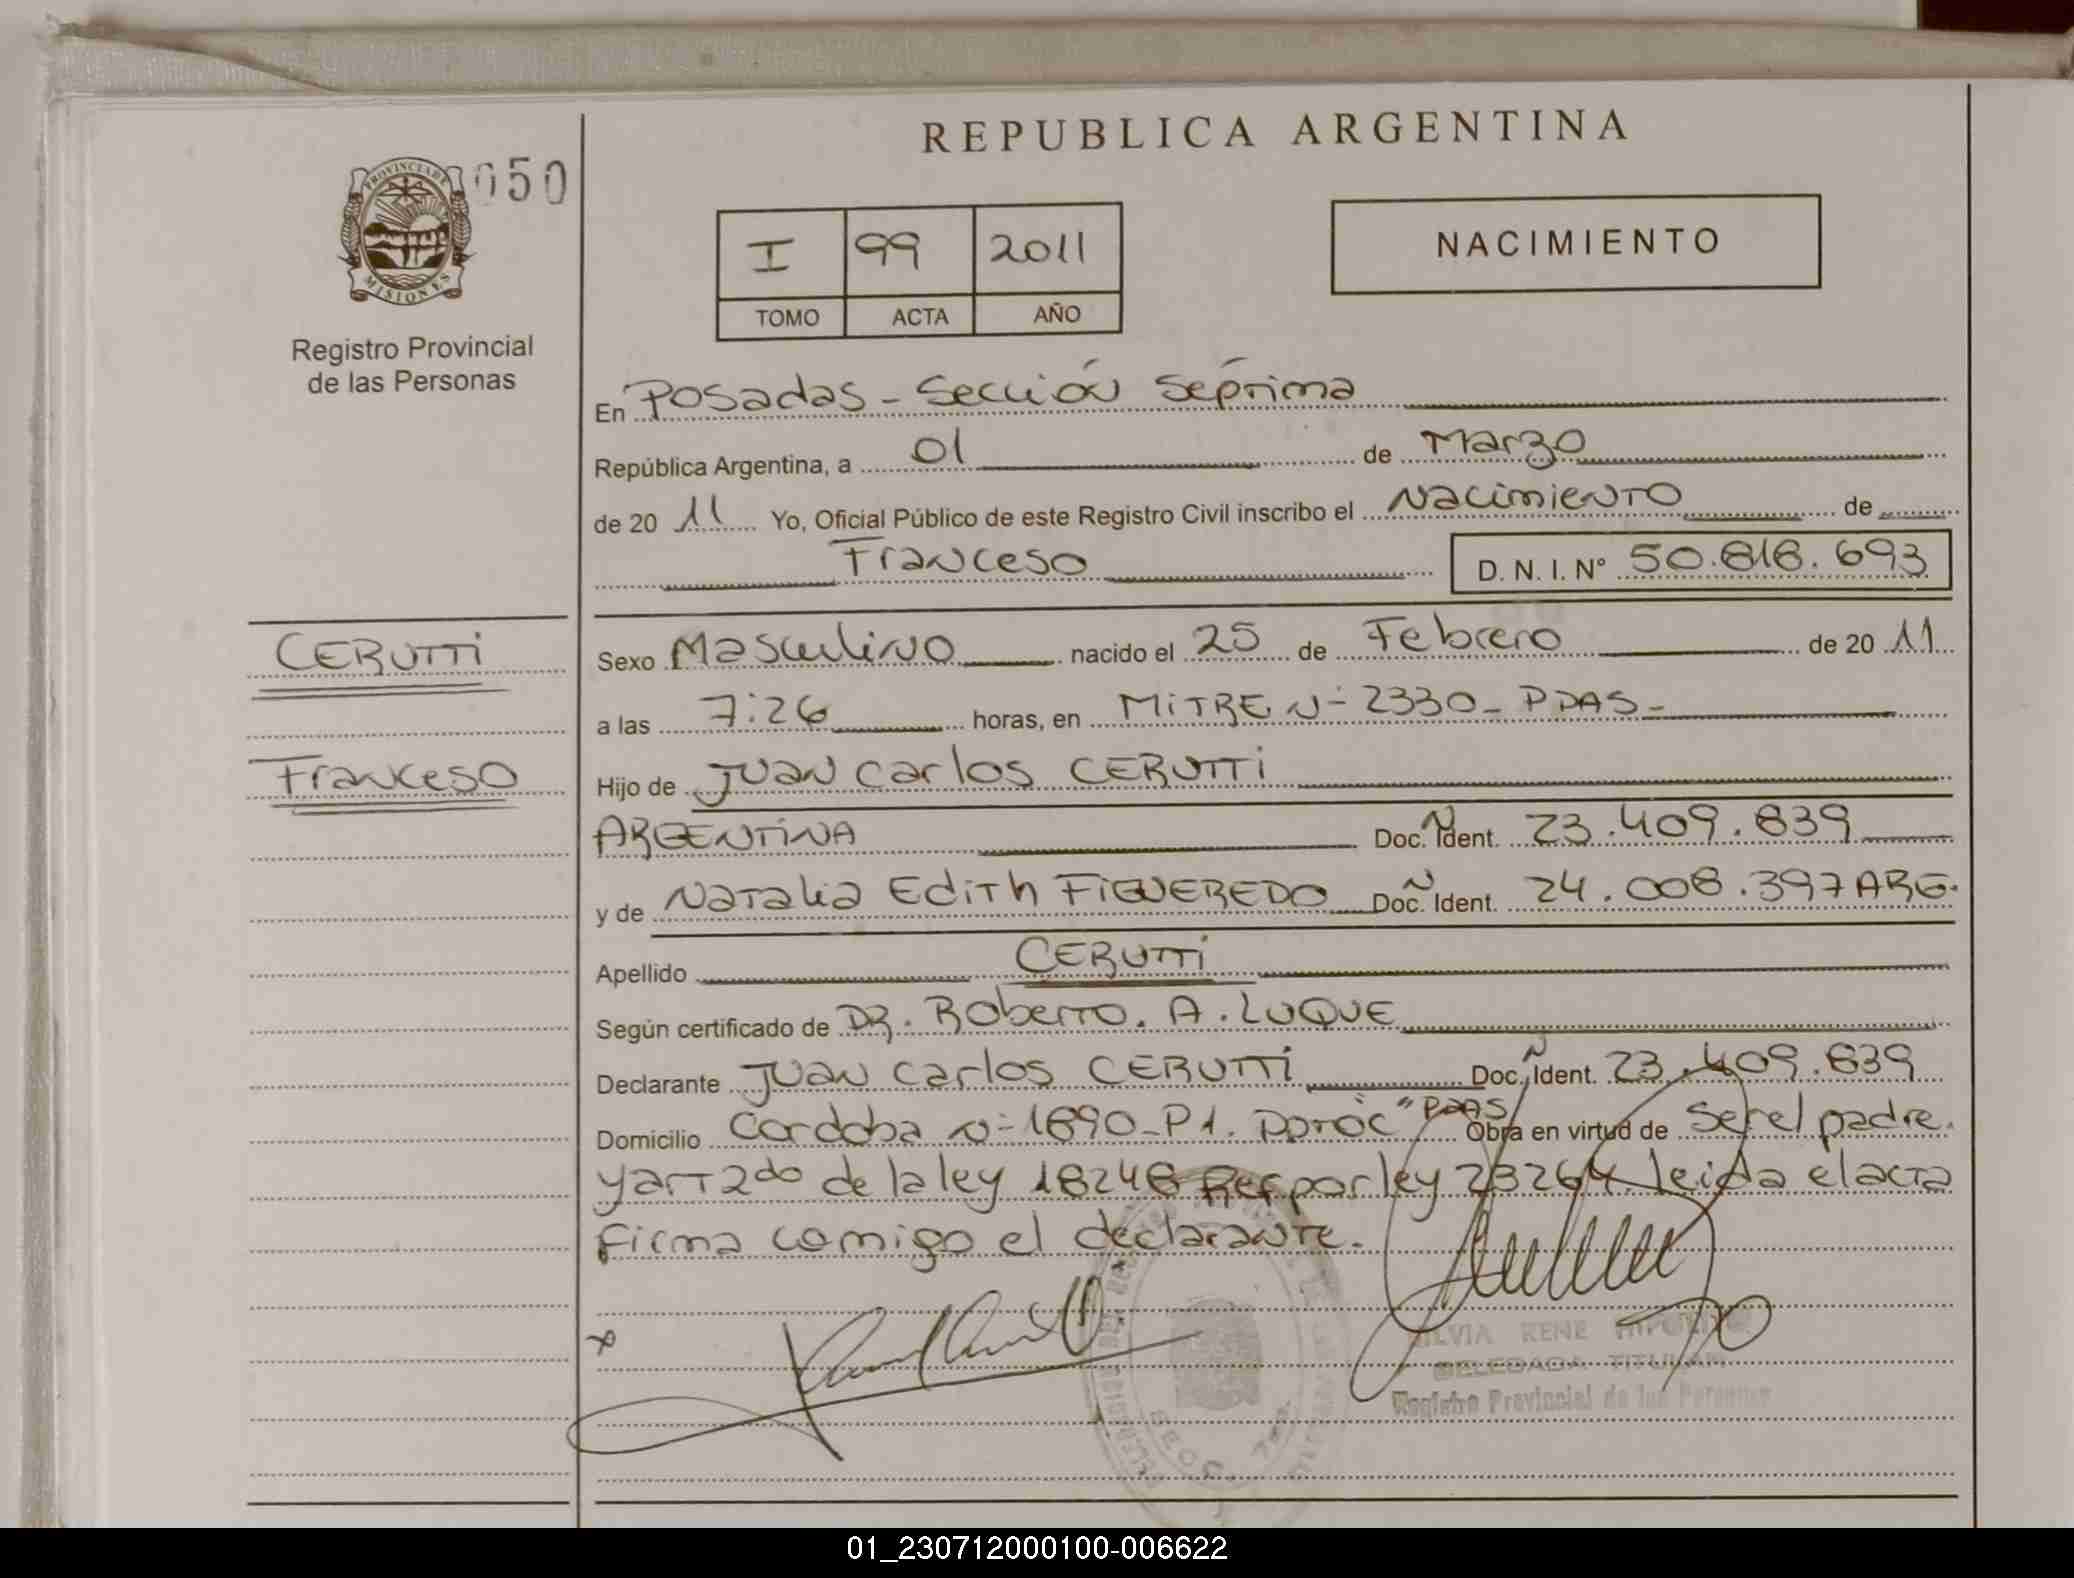 REPUBLICA ARGENTINA
050
PROVINCIA DE
MISIONES
Registro Provincial
de las Personas
I 99 2011
TOMO ACTA AÑO
NACIMIENTO
En Posadas - Sección Séptima
República Argentina, a 01 de Marzo
de 20 11 Yo, Oficial Público de este Registro Civil inscribo el Nacimiento de
Franceso D. N. I. N° 50.818.693
CERUTTI
Franceso
Sexo Masculino nacido el 25 de Febrero de 20 11
a las 7:26 horas, en MITRE N- 2330 - PDAS -
Hijo de Juan Carlos CERUTTI
ARGENTINA Doc. Ident. 23.409.839
y de Natalia Edith FIGUEREDO Doc. Ident. 24.008.397 ARG.
Apellido CERUTTI
Según certificado de DR. Roberto. A. LUQUE
Declarante Juan Carlos CERUTTI Doc. Ident. 23.409.839
Domicilio Cordoba N- 1890 - P1. Dpto "C" PDAS Obra en virtud de Ser el padre.
y art 2do de la ley 18248 Ref por ley 23264. leida el acta
firma comigo el declarante.
x
SILVIA RENE HIPOLITO
DELEGADA TITULAR
Registro Provincial de las Personas
01_230712000100-006622